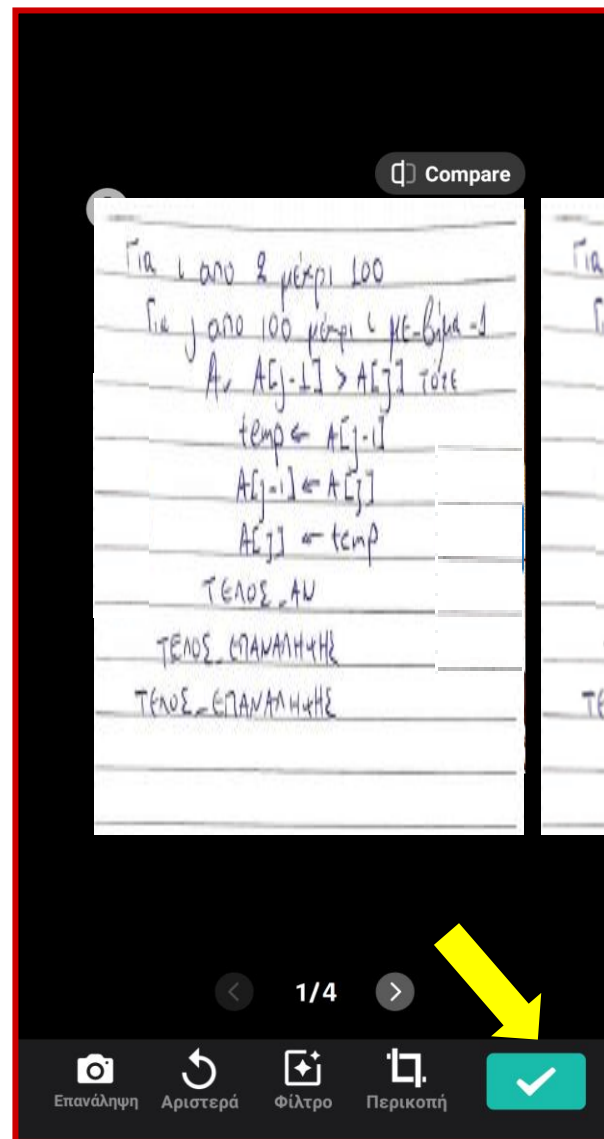 Compare
Για ι απο 2 μέχρι 100
Για j απο 100 μέχρι ι με-βήμα -1
Αν A[j-1] > A[j] τότε
temp ← A[j-1]
A[j-1] ← A[j]
A[j] ← temp
ΤΕΛΟΣ_ΑΝ
ΤΕΛΟΣ_ΕΠΑΝΑΛΗΨΗΣ
ΤΕΛΟΣ_ΕΠΑΝΑΛΗΨΗΣ
Για
ΤΕ
1/4
Επανάληψη Αριστερά Φίλτρο Περικοπή